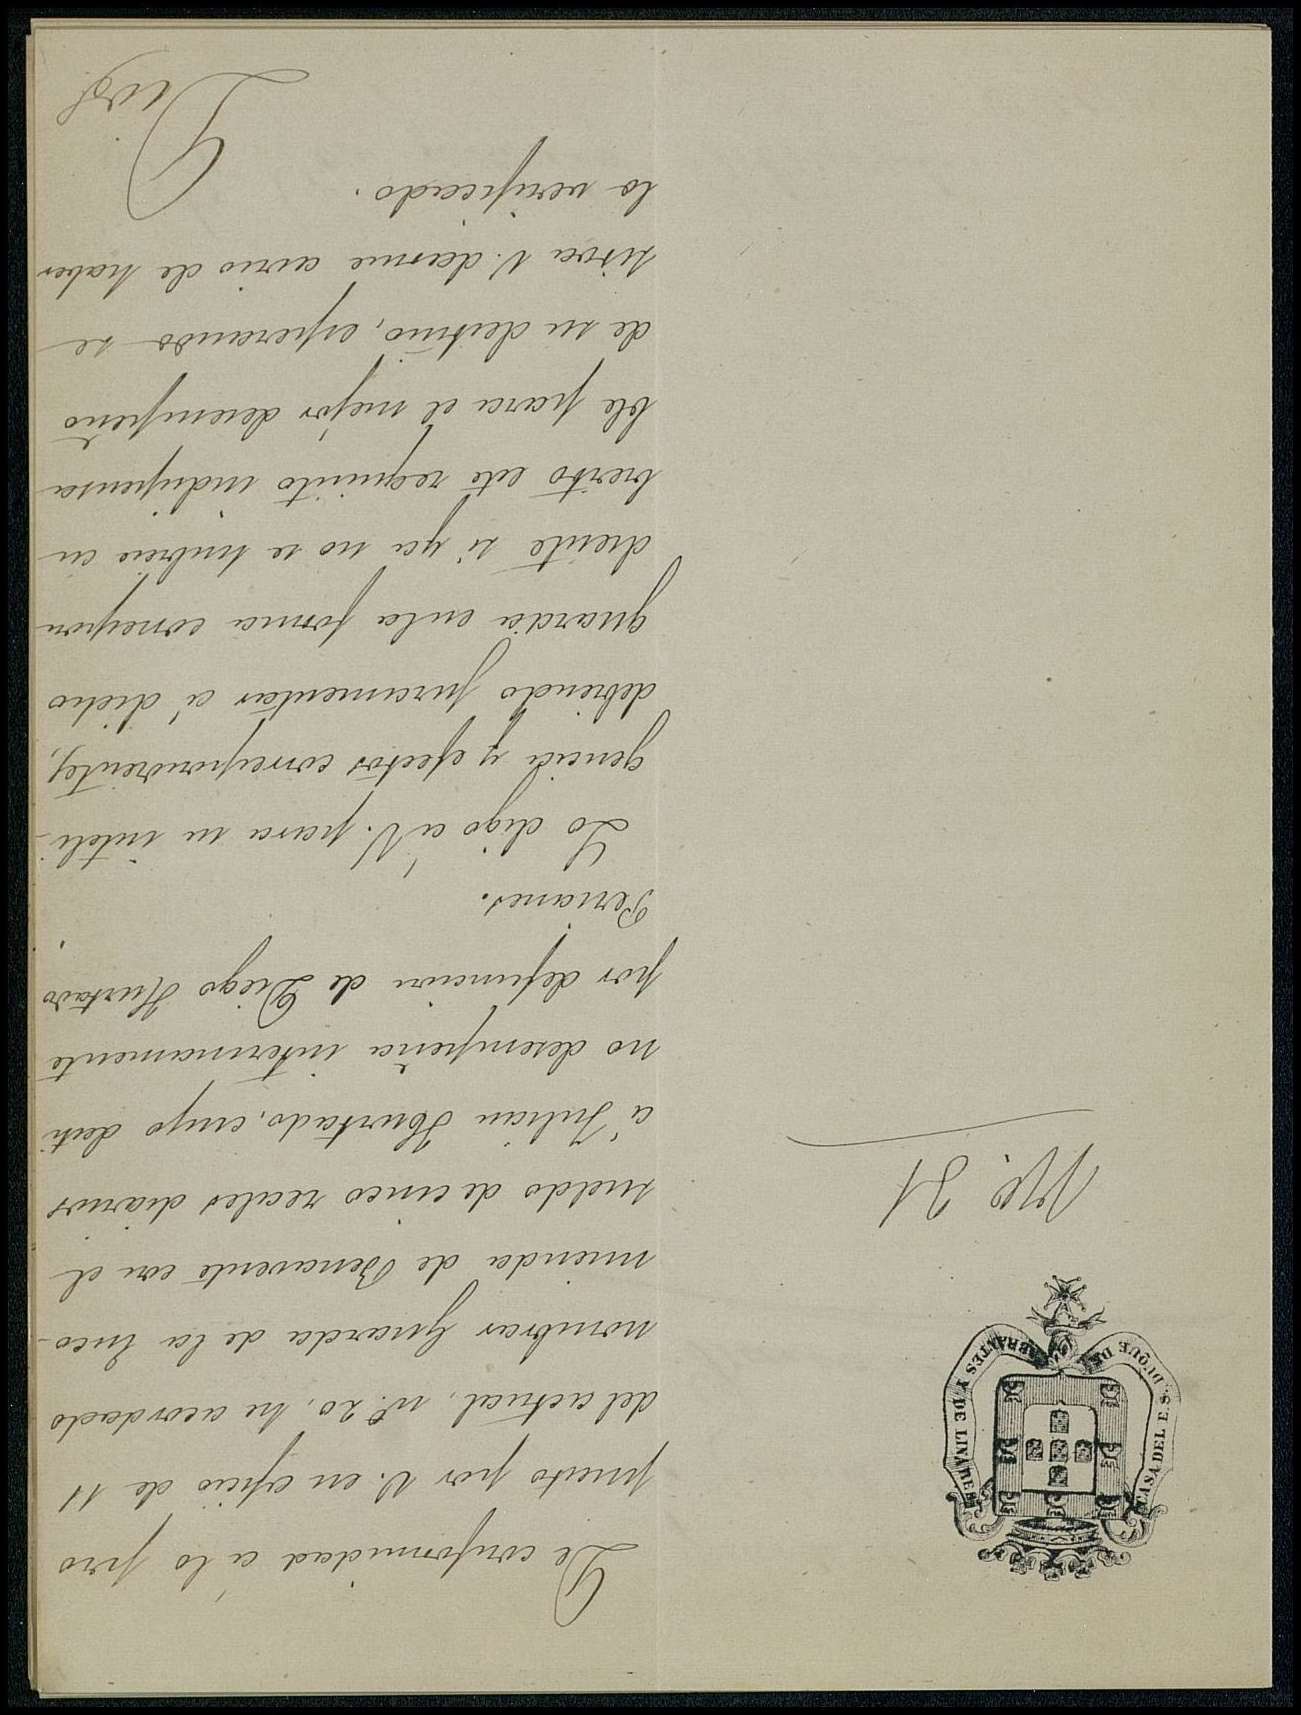 CASA DEL E.S. DUQUE DE ABRANTES Y DE LINARES
Nº. 31
De conformidad á lo pro
puesto por V. en oficio de 11
del actual, nº 20, he acordado
nombrar Guarda de la Enco-
mienda de Benavente con el
sueldo de cinco reales diarios
á Julian Hurtado, cuyo desti
no desempeña interinamente
por defuncion de Diego Hurtado
Perianes.
Lo digo á V. para su inteli-
gencia y efectos correspondientes,
debiendo juramentar á dicho
guarda en la forma correspon
diente si ya no se hubiere cu
bierto este requisito indispensa
ble para el mejor desempeño
de su destino, esperando se
sirva V. darme aviso de haber
lo verificado.
Dios